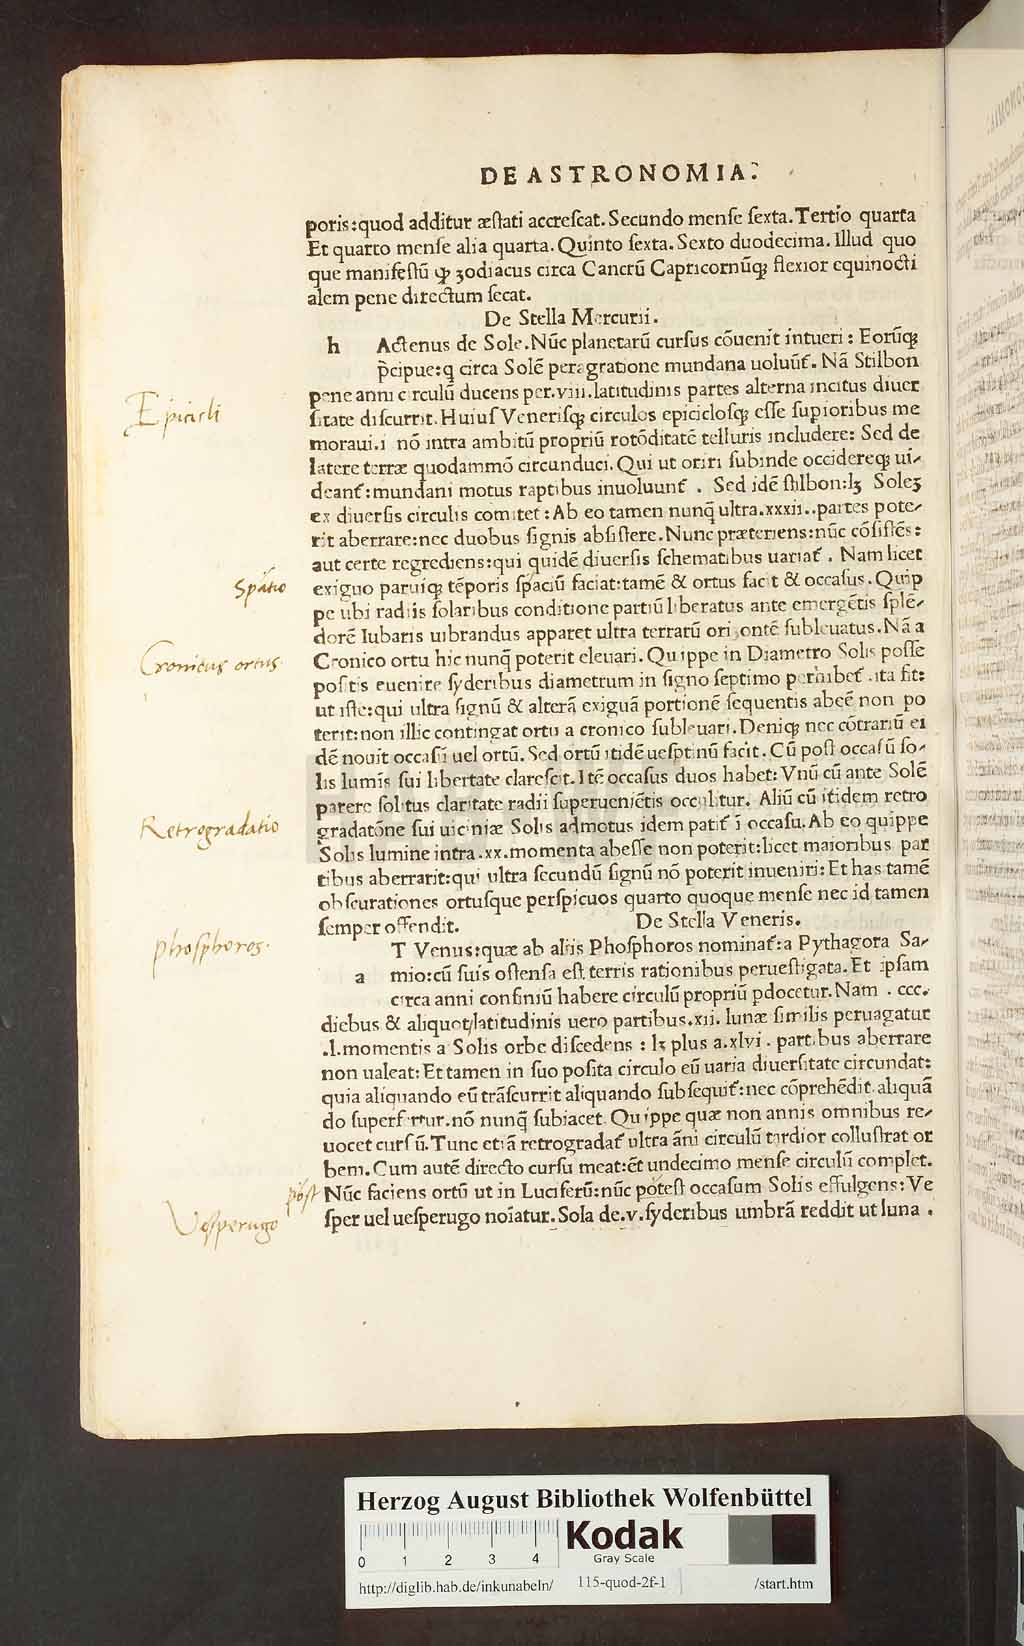 DE ASTRONOMIA.
poris:quod additur æstati accrescat. Secundo mense sexta. Tertio quarta
Et quarto mense alia quarta. Quinto sexta. Sexto duodecima. Illud quo
que manifestũ ꝙ zodiacus circa Cancrũ Capricornũqꝫ flexior equinocti
alem pene directum secat.
De Stella Mercurii.
h Actenus de Sole. Nũc planetarũ cursus cõuenit intueri: Eorũqꝫ
p̃cipue:q circa Solẽ peragratione mundana uoluũt̃. Nã Stilbon
pene anni circulũ ducens per.viii.latitudinis partes alterna incitus diuer
sitate discurrit. Huius Venerisqꝫ circulos epiciclosqꝫ esse supioribus me
moraui.i nõ intra ambitũ propriũ rotõditatẽ telluris includere: Sed de
latere terræ quodammõ circunduci. Qui ut oriri subinde occidereqꝫ ui-
deant̃:mundani motus raptibus inuoluunt̃. Sed idẽ stilbon:lꝫ Soleꝫ
ex diuersis circulis comitet̃: Ab eo tamen nunq̃ ultra.xxxii..partes pote-
rit aberrare:nec duobus signis absistere. Nunc præteriens:nũc cõsistẽs:
aut certe regrediens:qui quidẽ diuersis schematibus uariat̃. Nam licet
exiguo paruiqꝫ tẽporis spaciũ faciat:tamẽ & ortus facit & occasus. Quip
pe ubi radiis solaribus conditione partiũ liberatus ante emergẽtis splẽ-
dorẽ Iubaris uibrandus apparet ultra terrarũ orizontẽ subleuatus. Nã a
Cronico ortu hic nunq̃ poterit eleuari. Quippe in Diametro Solis posse
positis euenire syderibus diametrum in signo septimo perhibet̃.ita fit:
ut iste:qui ultra signũ & alterã exiguã portionẽ sequentis abeẽ non po
terit:non illic contingat ortu a cronico subleuari. Deniqꝫ nec cõtrariũ ei
dẽ nouit occasũ uel ortũ. Sed ortũ itidẽ uesptinũ facit. Cũ post occasũ so-
lis lumĩs sui libertate clarescit. Itẽ occasus duos habet: Vnũ cũ ante Solẽ
parere solitus claritate radii superueniẽtis occulitur. Aliũ cũ itidem retro
gradatõne sui uiciniæ Solis admotus idem patit̃ ĩ occasu. Ab eo quippe
Solis lumine intra.xx.momenta abesse non poterit:licet maioribus par
tibus aberrarit:qui ultra secundũ signũ nõ poterit inueniri: Et has tamẽ
obscurationes ortusque perspicuos quarto quoque mense nec id tamen
semper offendit. De Stella Veneris.
T Venus:quæ ab aliis Phosphoros nominat̃:a Pythagora Sa-
a mio:cũ suis ostensa est terris rationibus peruestigata. Et ipsam
circa anni confiniũ habere circulũ propriũ pdocetur. Nam .ccc.
diebus & aliquot/latitudinis uero partibus.xii. lunæ similis peruagatur
.l.momentis a Solis orbe discedens : lꝫ plus a.xlvi. partibus aberrare
non ualeat: Et tamen in suo posita circulo eũ uaria diuersitate circundat:
quia aliquando eũ trãscurrit aliquando subsequit̃:nec cõprehẽdit.aliquã
do superfertur.nõ nunq̃ subiacet. Quippe quæ non annis omnibus re-
uocet cursũ. Tunc etiã retrogradat̃ ultra ãni circulũ tardior collustrat or
bem. Cum autẽ directo cursu meat:ẽt undecimo mense circulũ complet.
Nũc faciens ortũ ut in Luciferũ:nũc potest occasum Solis effulgens: Ve
sper uel uesperugo noĩatur. Sola de.v.syderibus umbrã reddit ut luna.
Epicicli
Spatio
Cronicus ortus.
Retrogradatio
phosphoros.
post
Vesperugo
Herzog August Bibliothek Wolfenbüttel
0 1 2 3 4
Kodak
Gray Scale
http://diglib.hab.de/inkunabeln/ 115-quod-2f-1 /start.htm